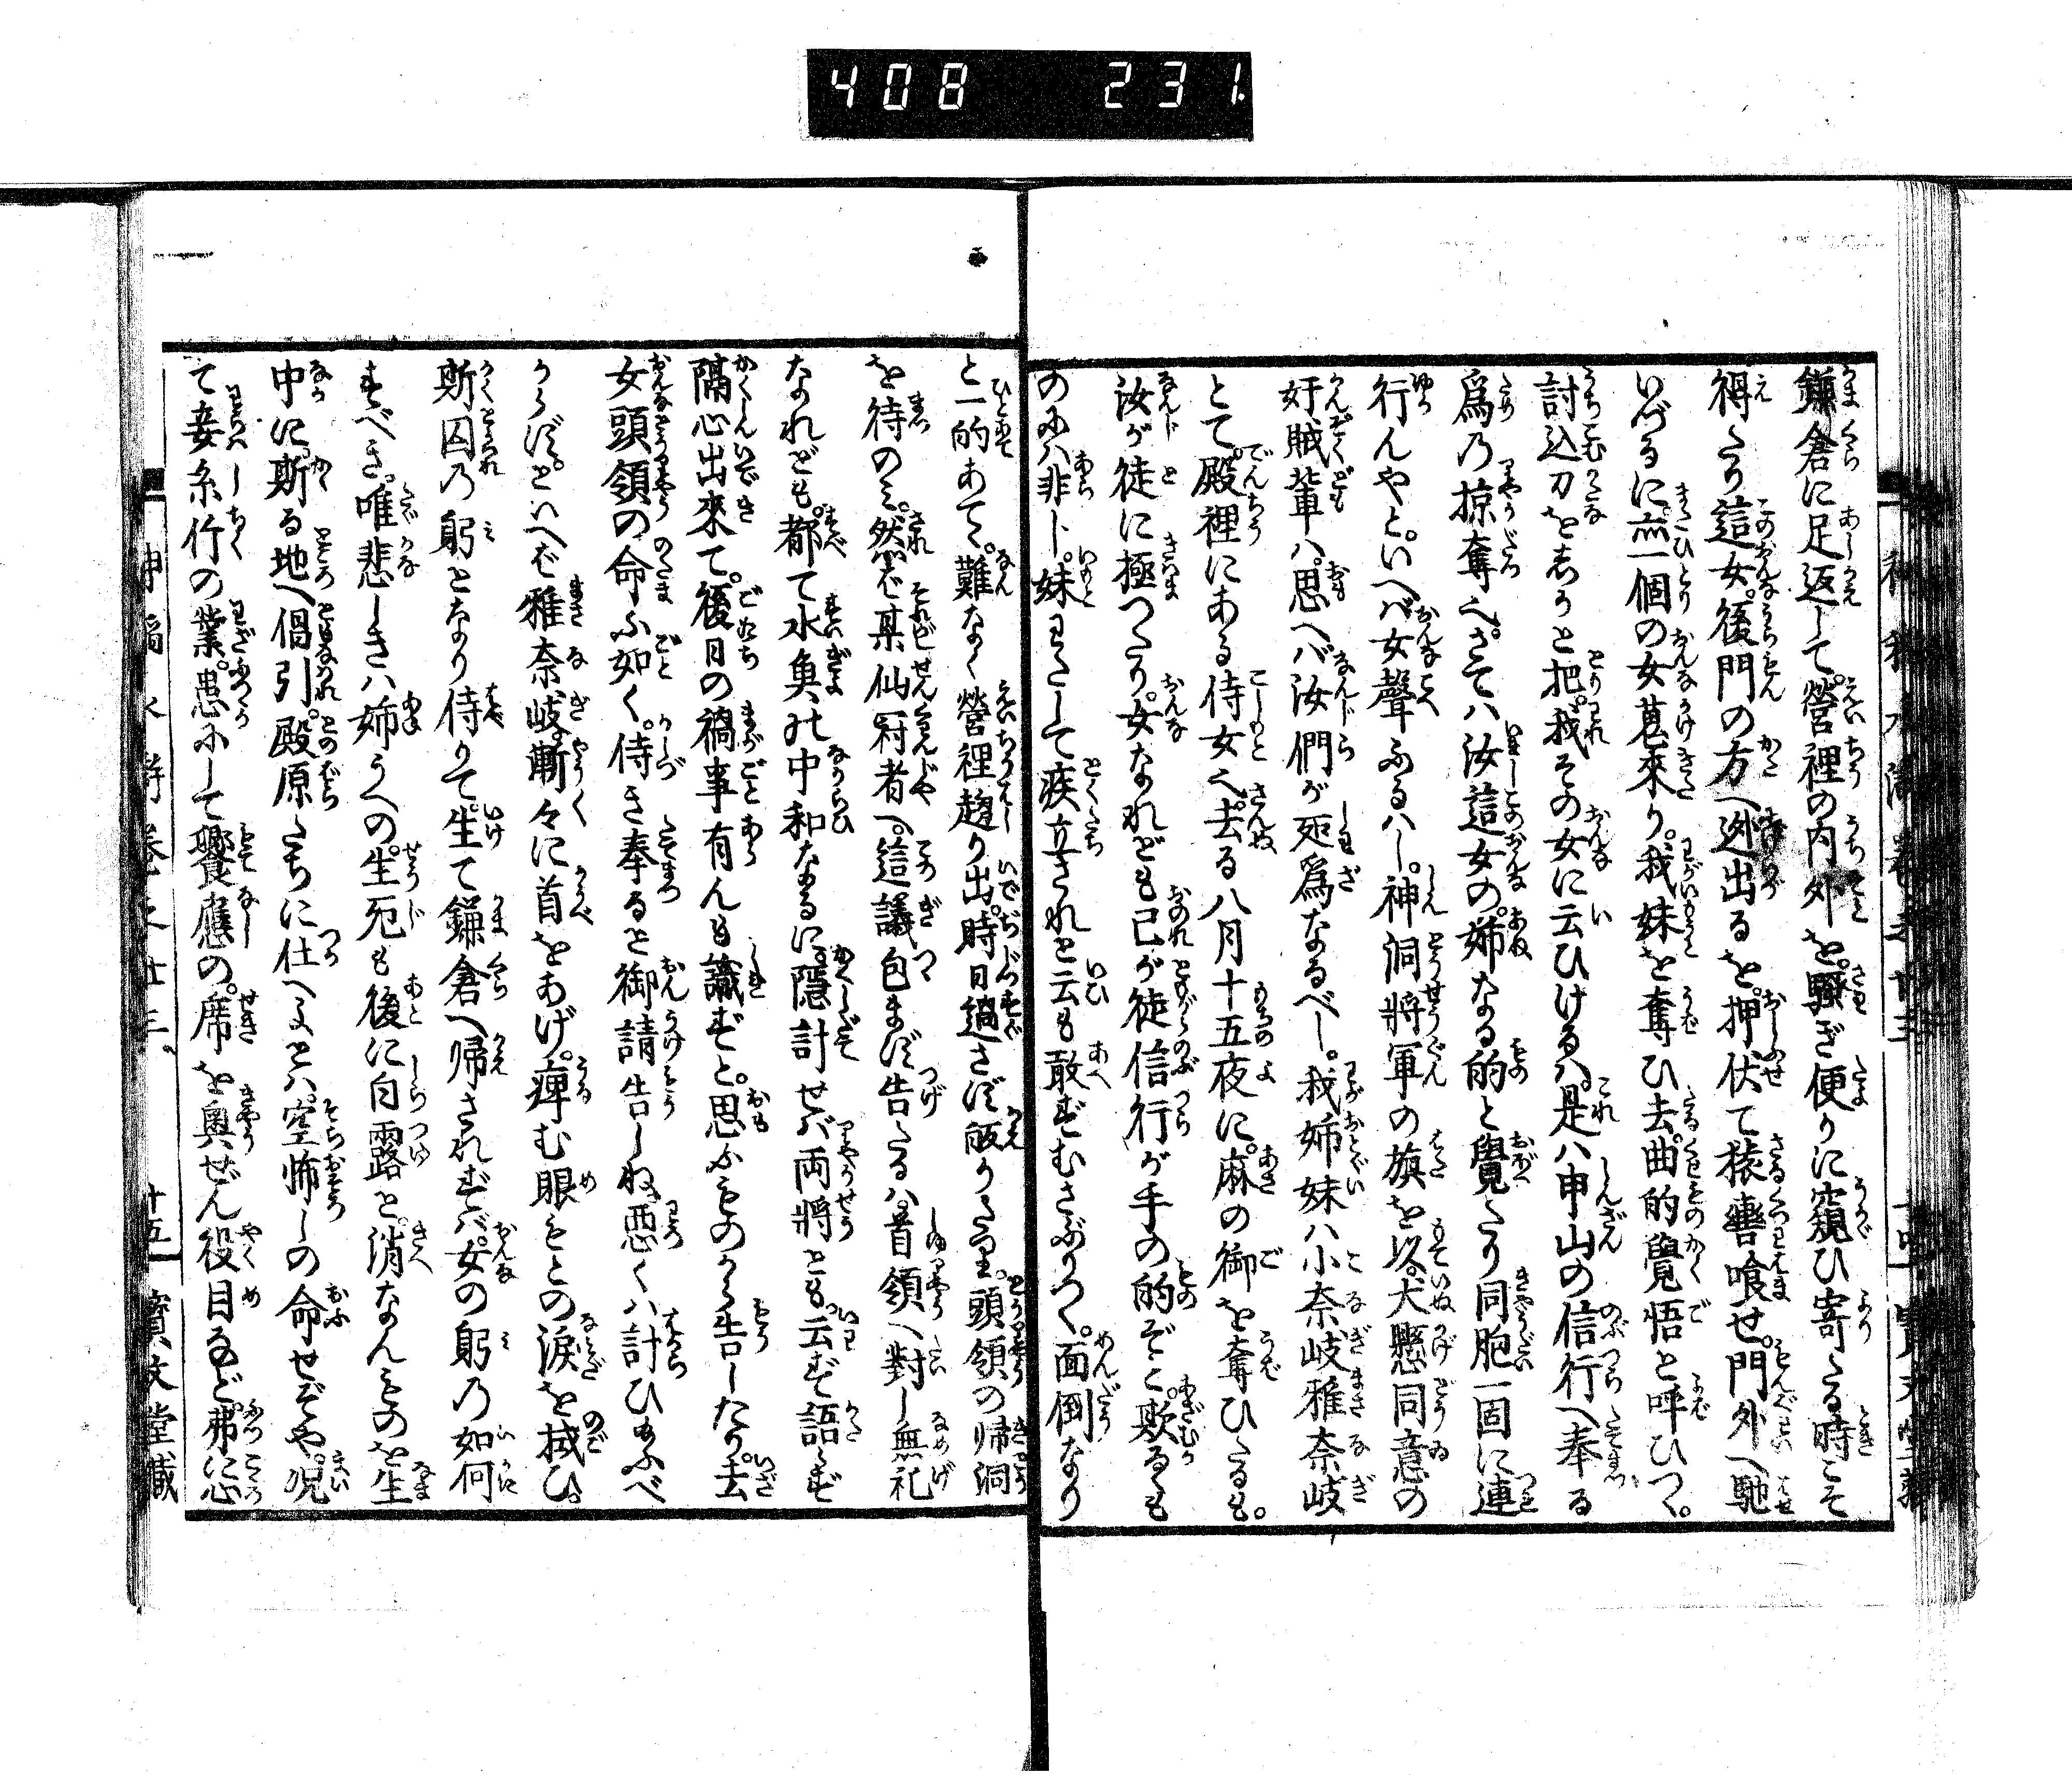 408 231
鎌倉に足返して。營裡の内外を。騒ぎ便りに窺ひ寄たる時こそ
得たり這女。後門の方へ迯出るを。押伏て猿轡喰せ。門外へ馳
いづるに。亦一個の女慕來り。我妹を奪ひ去。曲的覺悟と呼ひつゝ。
討込刀をちやうと把。我その女に云ひけるハ。是ハ申山の信行へ奉る
爲乃掠奪へ。さてハ汝這女の。姉なる的と覺たり同胞一固に連
行んやと。いへバ女聲ふるハし。神洞將軍の旗を以。犬懸同意の
奸賊輩ハ。思へバ汝們が所爲なるべし。我姉妹ハ小奈岐雅奈岐
とて。殿裡にある侍女へ。去る八月十五夜に。麻の御を奪ひたるも。
汝が徒に極つたり。女なれども己が徒信行が手の的ぞと。欺るゝも
のにハ非ト。妹わたして疾立されと云も敢ずむさぶりつく。面倒なり
と一的あて。難なく營裡趨り出。時日過さず皈りたり。頭領の帰洞
を待のミ。然ど某仙冠者へ。這議包まず告たるハ。首領へ對し無礼
なれども。都て水魚の中和なるに。隱計せバ両將とも。云ず語ず
隔心出來て。後日の禍事有んも識ずと。思ふものから告したり。去
女頭領の命ふ如く。侍き奉ると御請告しね。悪くハ計ひ給ふべ
からず。といへど雅奈岐。漸々に首をあげ。痺む眼もとの涙を拭ひ。
斯囚乃躬となり侍りて。生て鎌倉へ帰されずバ。女の躬乃如何
すべき。唯悲しきハ姉うへの。生死も後に白露と。消なんものを生
中に。斯る地へ倡引。殿原たちに仕へよとハ。空怖しの命せぞや。况
て妾糸竹の業。患にして饗應の。席を奥ぜん役目など。弗に忩
神稲水滸巻之廿三 十五 寳文堂藏